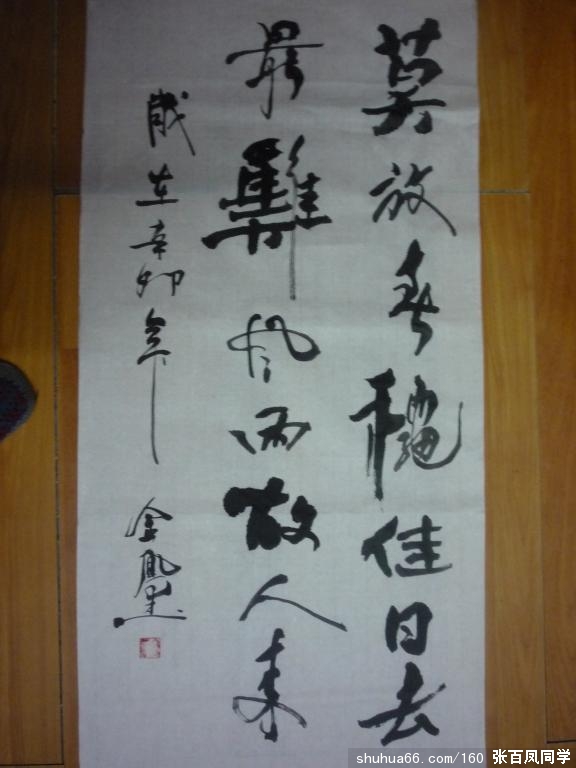 莫放春穐佳日去
最難風雨故人来
歲在辛卯年
金鳳
shuhua66.com/160 张百凤同学